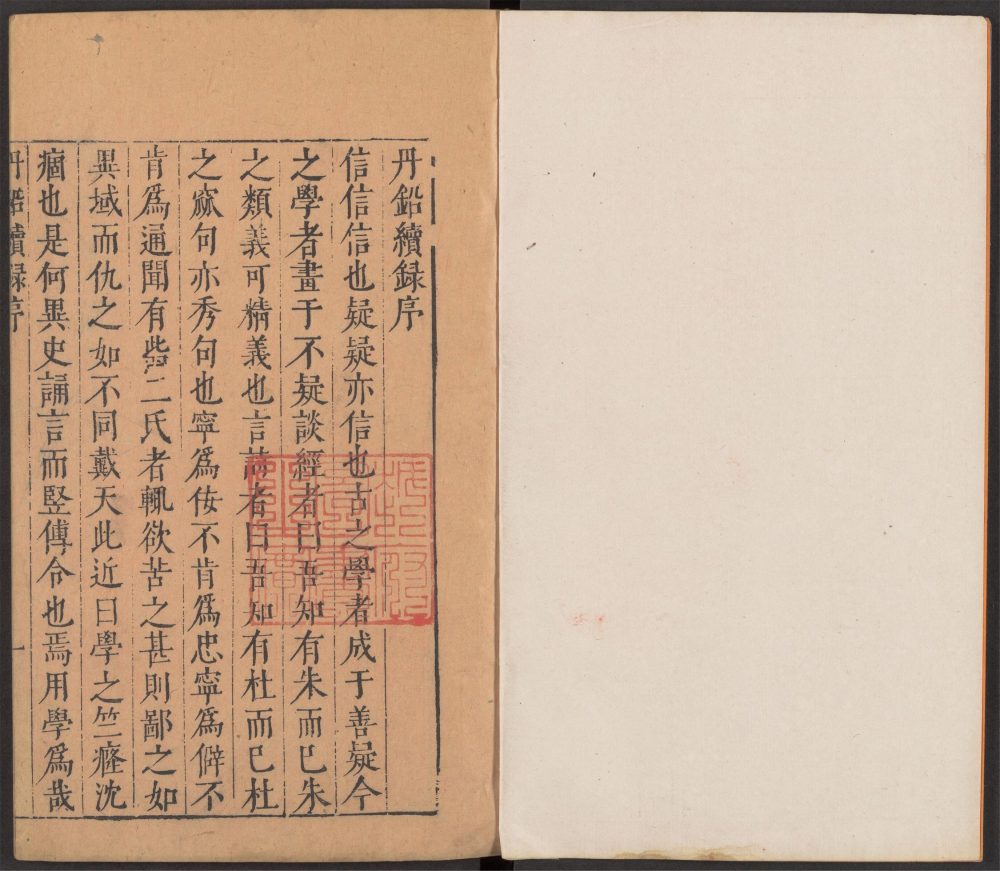 丹鉛續録序
信信信也疑疑亦信也古之學者成于善疑今
之學者畫于不疑談經者曰吾知有朱而已朱
之類義可精義也言詩者曰吾知有杜而已杜
之窳句亦秀句也寧爲佞不肯爲忠寧爲僻不
肯爲通聞有訾二氏者輒欲苦之甚則鄙之如
異域而仇之如不同戴天此近日學之竺癃沈
痼也是何異史誦言而竪傳令也焉用學爲哉
丹鉛續録序
一